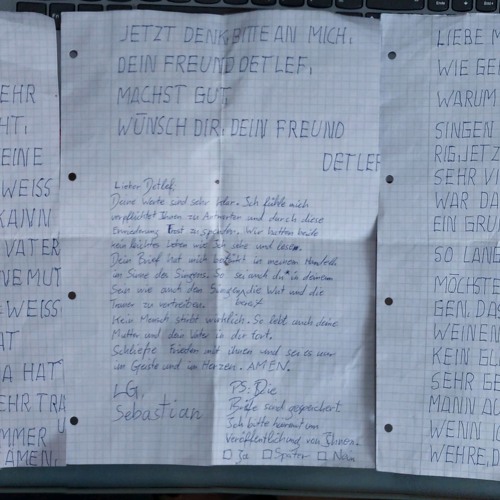 EHR
HT,
EINE
WEISS
KANN
VATER
NEMUT
WEISS
AT
A HAT
EHR TRA
MMER U
AMEN,
JETZT DENK, BITTE AN MICH,
DEIN FREUND DETLEF,
MACHST GUT,
WÜNSCH DIR, DEIN FREUND
DETLEF
Lieber Detlef,
Deine Worte sind sehr klar. Ich fühle mich
verpflichtet Ihnen zu Antworten und durch diese
Trost zu spenden. Wir hatten beide
kein leichtes Leben wie ich sehe und lese.
Dein Brief hat mich in meinem Handeln
im Sinne des Singens. So sei auch du in deinem
Sein wie auch den Singen, die Wut und die
Trauer zu vertreiben. bereit
Kein Mensch stirbt wirklich. So lebt auch deine
Mutter und dein Vater in dir fort.
Schließe Frieden mit ihnen und sei es nur
im Geiste und im Herzen. AMEN.
LG,
Sebastian
PS: Die
Briefe sind gespeichert
Ich bitte hiermit um
Veröffentlichung von Ihnen.
Ja Später Nein
LIEBE M
WIE GE
WARUM
SINGEN
RIG, JETZ
SEHR VI
WAR DA
EIN GRU
SO LANG
MÖCHTE
GEN, DAS
WEINEN
KEIN GL
SEHR GE
MANN AU
WENN IC
WEHRE, D